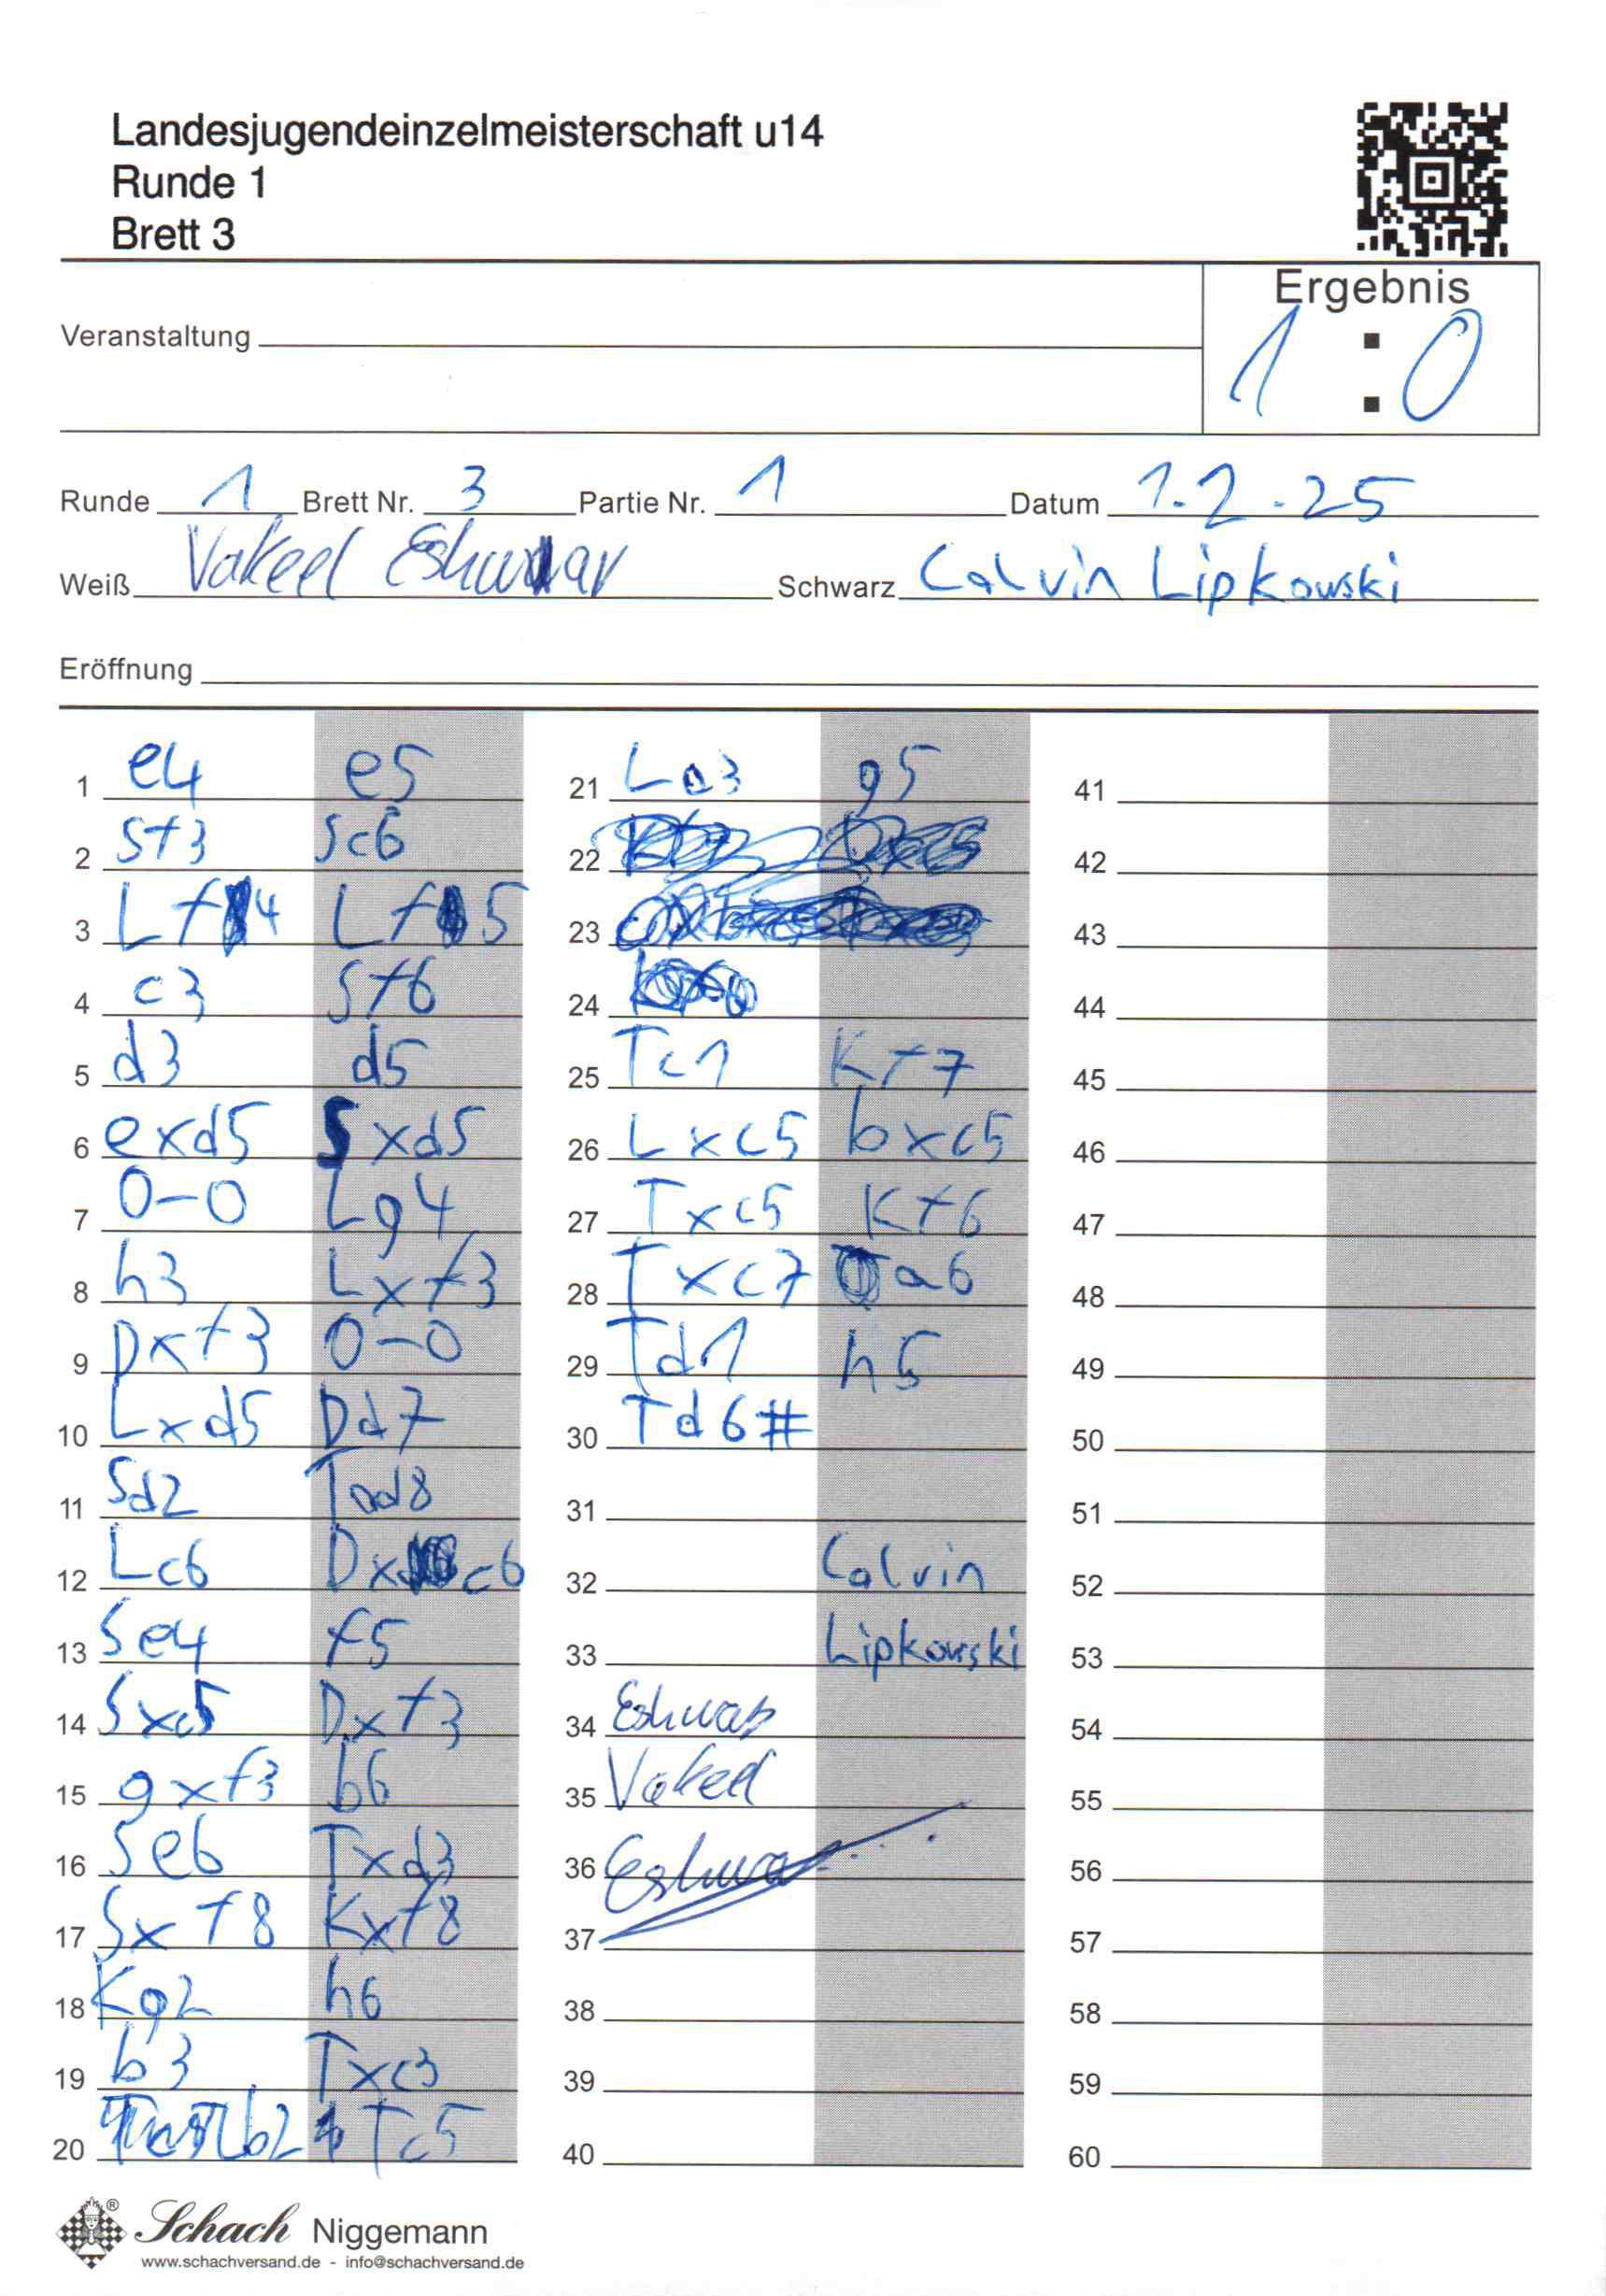 Landesjugendeinzelmeisterschaft u14
Runde 1
Brett 3
Ergebnis
1 : 0
Veranstaltung
Runde 1 Brett Nr. 3 Partie Nr. 1 Datum 1.2.25
Weiß Vakeel Eshwar Schwarz Calvin Lipkowski
Eröffnung
1 e4 e5
2 Sf3 Sc6
3 Lf4 Lf5
4 c3 Sf6
5 d3 d5
6 exd5 Sxd5
7 0-0 Lg4
8 h3 Lxf3
9 Dxf3 0-0
10 Lxd5 Dd7
11 Sd2 Tad8
12 Lc6 Dxc6
13 Se4 f5
14 Sxc5 Dxf3
15 gxf3 b6
16 Se6 Txd3
17 Sxf8 Kxf8
18 Kg2 h6
19 b3 Txc3
20 Lb2 Tc5
21 La3 g5
22
23
24
25 Tc1 Kf7
26 Lxc5 bxc5
27 Txc5 Kf6
28 Txc7 a6
29 Td1 h5
30 Td6#
31
32 Calvin
33 Lipkowski
34 Eshwar
35 Vakeel
36 Eshwar
37
38
39
40
41
42
43
44
45
46
47
48
49
50
51
52
53
54
55
56
57
58
59
60
Schach Niggemann
www.schachversand.de - info@schachversand.de